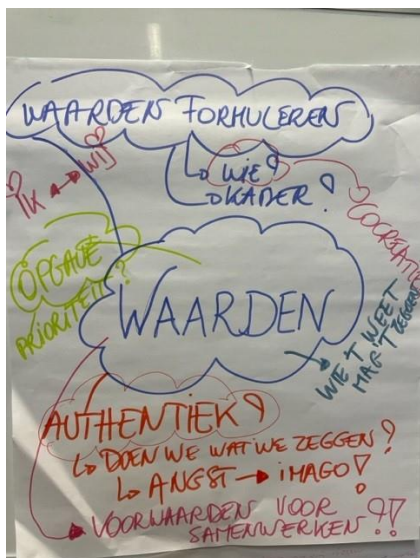 WAARDEN FORMULEREN
IK ↔ WIJ
↳ WIE?
↳ KADER!
COCREATIE
OPGAVE
PRIORITEIT?
WAARDEN
WIE 'T WEET
MAG 'T ZEGGEN
AUTHENTIEK?
↳ DOEN WE WAT WE ZEGGEN?
↳ ANGST → IMAGO!
VOORWAARDEN VOOR
SAMENWERKEN?!